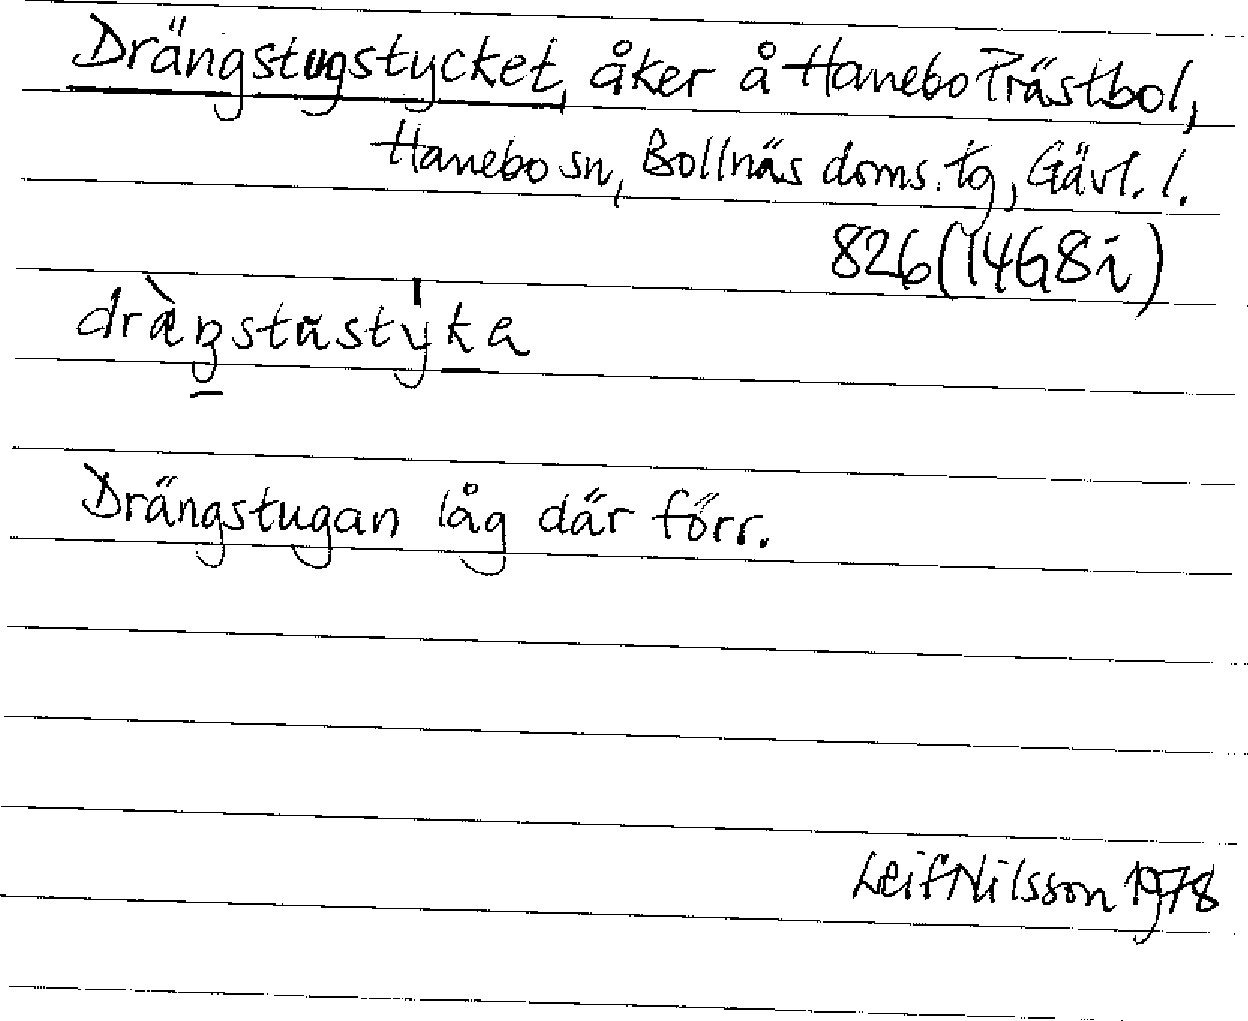 Drängstugstycket, åker å Hanebo Prästbol,
Hanebo sn, Bollnäs doms. tg, Gävl. l.
826 (14G8i)
Drängstugan låg där förr.
Leif Nilsson 1978